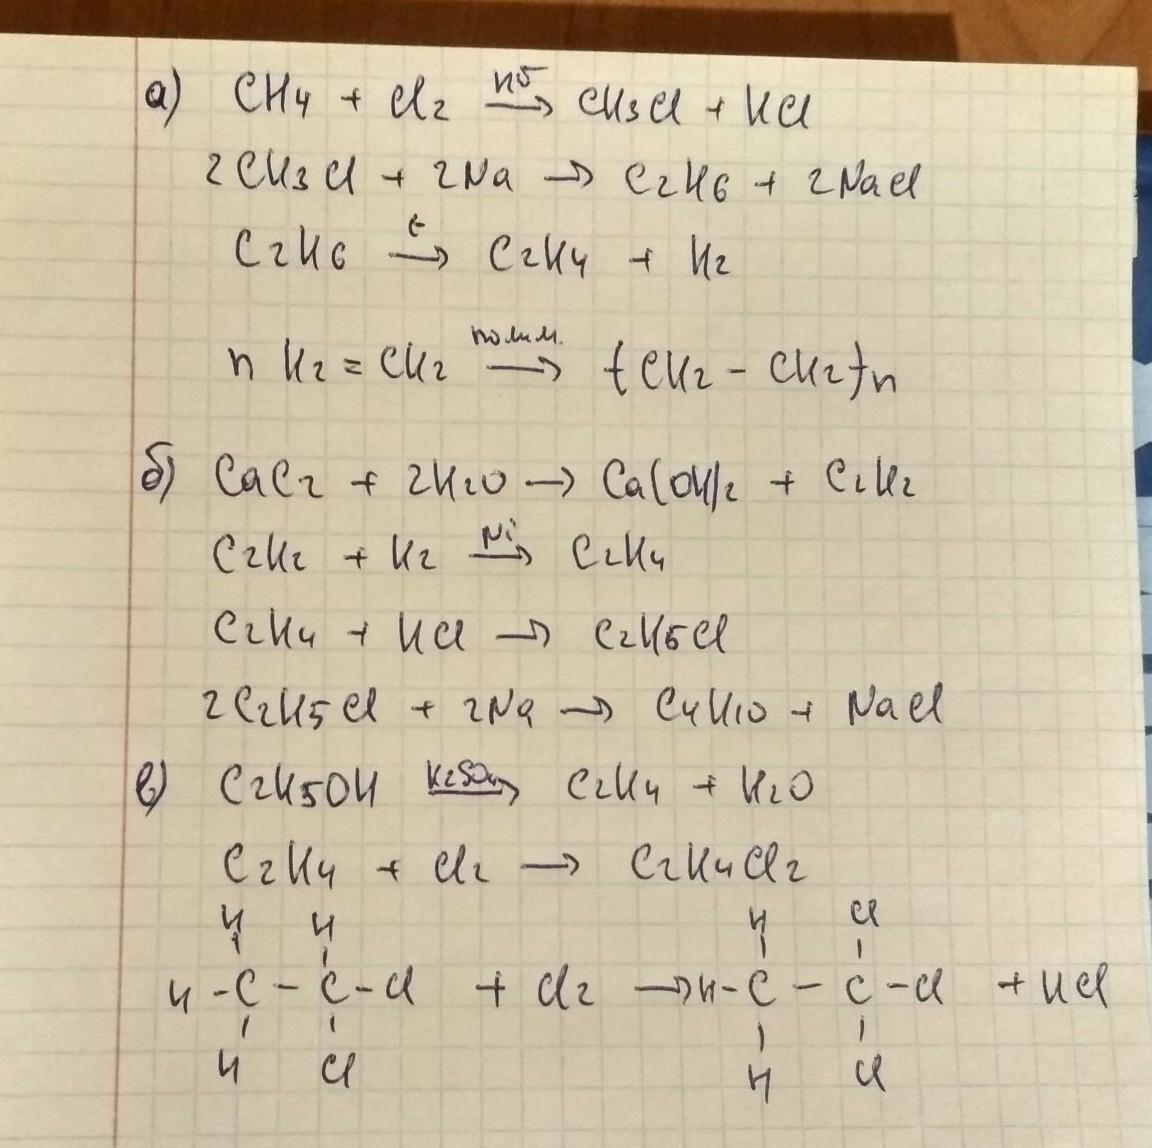 а) CH4 + Cl2 hδ→ CH3Cl + HCl
2CH3Cl + 2Na → C2H6 + 2NaCl
C2H6 t→ C2H4 + H2
n H2 = CH2 полим.→ (CH2 - CH2)n
б) CaC2 + 2H2O → Ca(OH)2 + C2H2
C2H2 + H2 Ni→ C2H4
C2H4 + HCl → C2H5Cl
2C2H5Cl + 2Na → C4H10 + NaCl
в) C2H5OH H2SO4→ C2H4 + H2O
C2H4 + Cl2 → C2H4Cl2
H H H Cl
H - C - C - Cl + Cl2 → H - C - C - Cl + HCl
H Cl H Cl